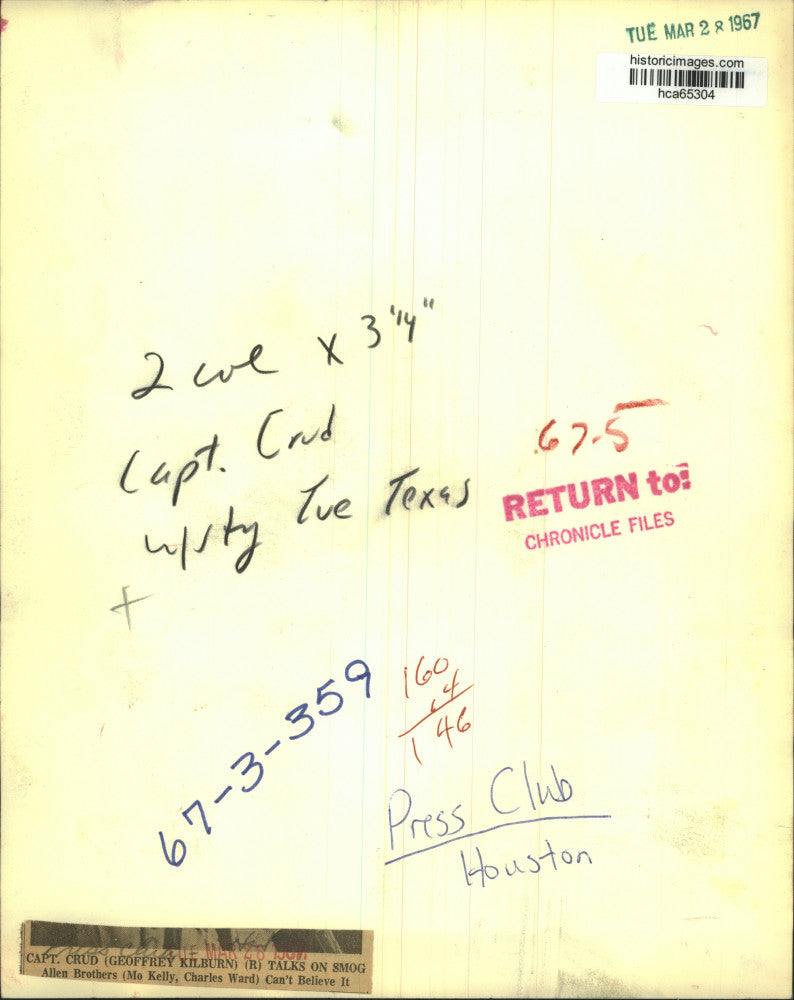 TUE MAR 28 1967
historicimages.com
hca65304
2 col x 3 1/4"
Capt. Crud
w/sty Tue Texas
67-5
RETURN to:
CHRONICLE FILES
67-3-359
160
14
146
Press Club
Houston
MAR 28 1967
CAPT. CRUD (GEOFFREY KILBURN) (R) TALKS ON SMOG
Allen Brothers (Mo Kelly, Charles Ward) Can't Believe It